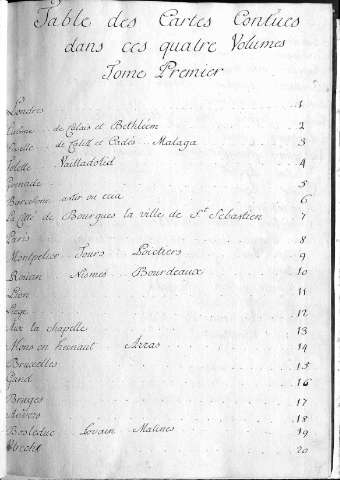 Table des Cartes Contües
dans ces quatre Volumes
Tome Premier
Londres 1
de Calais et Bethléem 2
de et Cadés Malaga 3
Tolette Vailladolid 4
Grenade 5
Barcelone 6
La Cité de Bourgues la ville de St Sebastien 7
Paris 8
Montpelier Tours Poictiers 9
Rouian Nismes Bourdeaux 10
Lion 11
Liege 12
Aix la chapelle 13
Mons en henaut Arras 14
Bruxelles 15
Gand 16
Bruges 17
Anvers 18
Bosleduc Lovain Malines 19
Utrecht 20